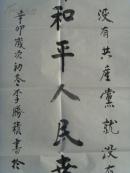 没有共產黨就没
和平人民幸
辛卯歲次初冬李勝積書於